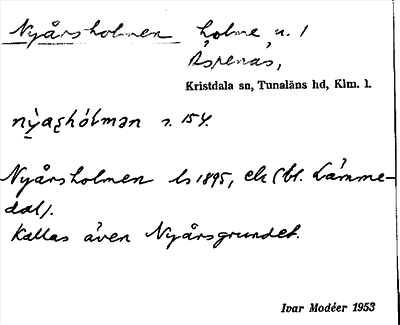 Nyårsholmen holme, n. 1
Äspenäs,
Kristdala sn, Tunaläns hd, Klm. l.
s. 154.
Nyårsholmen ls 1895, ek (bl. Lämme-
dal).
Kallas även Nyårsgrundet.
Ivar Modéer 1953